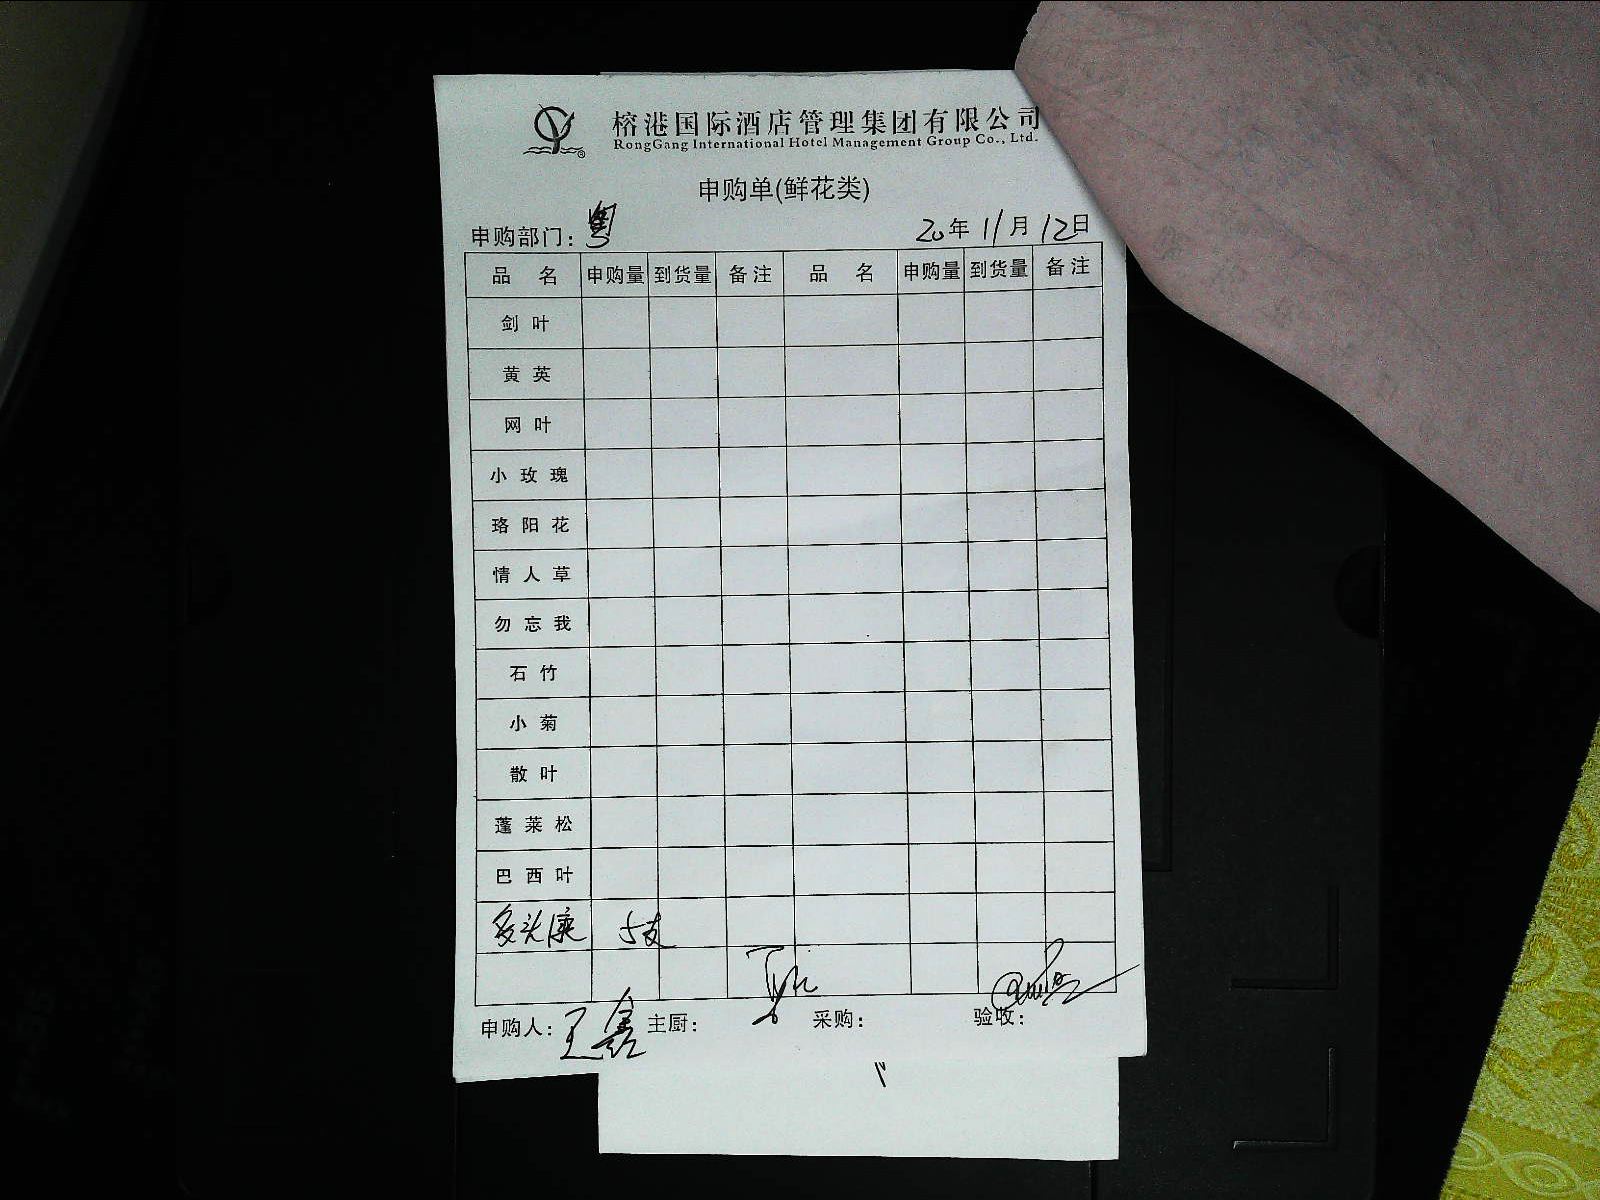 榕港国际酒店管理集团有限公司
RongGang International Hotel Management Group Co., Ltd.
申购单(鲜花类)
申购部门：粤 20年11月12日
品名 申购量 到货量 备注 品名 申购量 到货量 备注
剑叶
黄英
网叶
小玫瑰
珞阳花
情人草
勿忘我
石竹
小菊
散叶
蓬莱松
巴西叶
多头康 5支
申购人：王鑫 主厨： 采购： 验收：